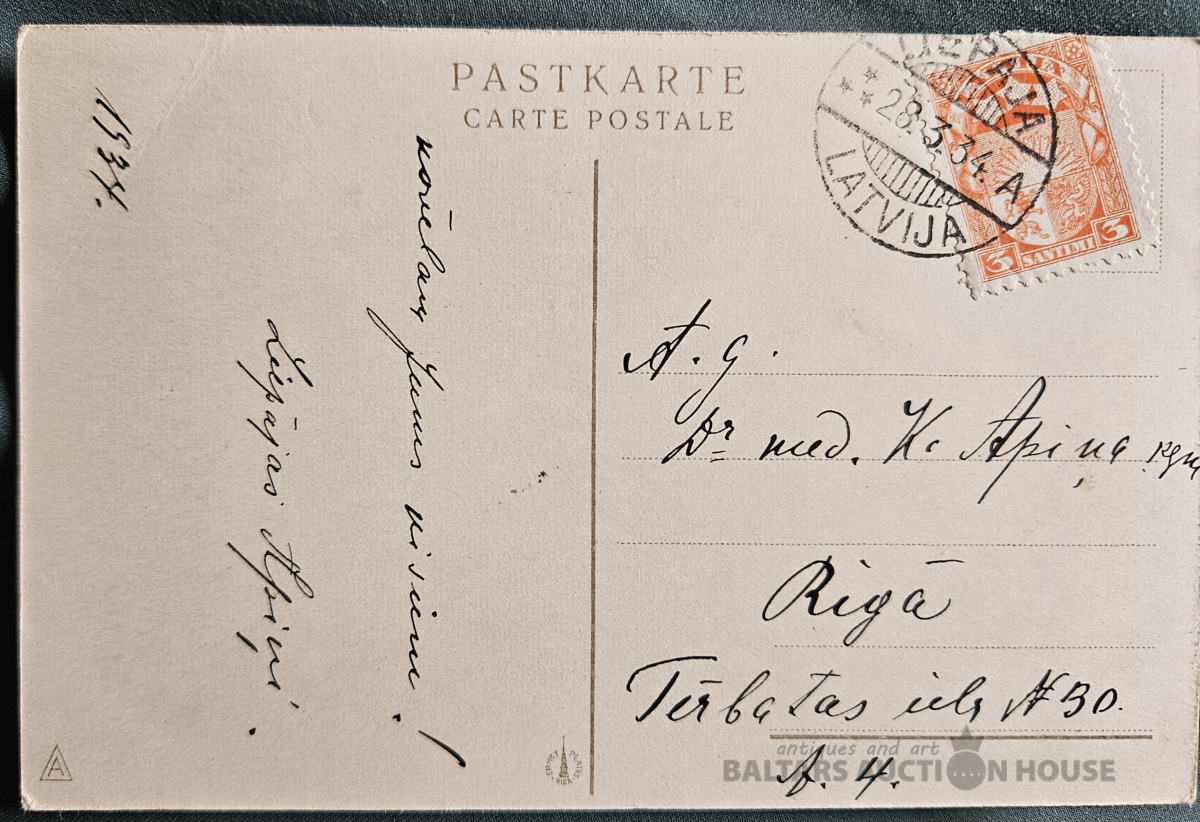 PASTKARTE
CARTE POSTALE
LIEPAJA
28.3.34. A
LATVIJA
3 SANTIMI 3
novēlam Jums visiem!
Liepājas Apiņi.
1934.
A. g.
Dr med. K. Apiņa kgm
Rigā
Tērbatas ielā № 30.
A. 4.
A
RIGA
antiques and art
BALTARS AUCTION HOUSE